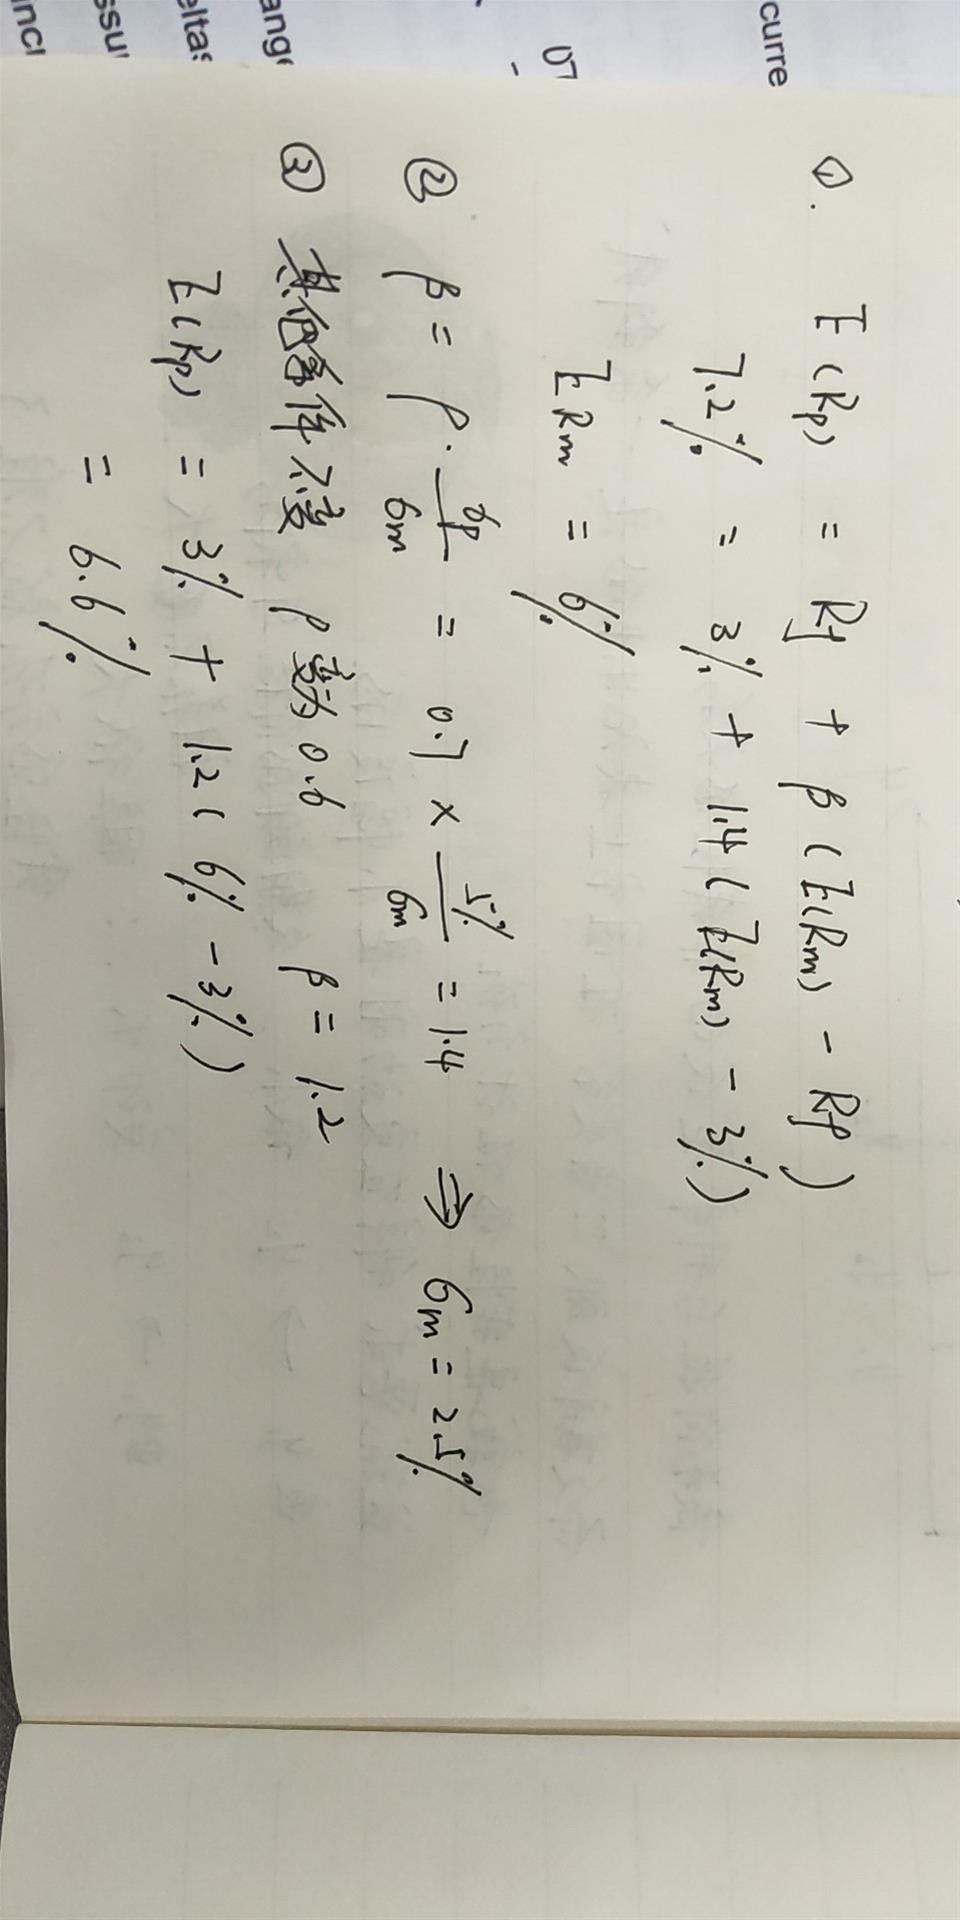 curre
07
ange
eltas
ssu
incl
①. E(Rp) = Rf + β(E(Rm) - Rf)
7.2% = 3% + 1.4(E(Rm) - 3%)
ERm = 6%
② β = ρ · σp/σm = 0.7 × 5%/σm = 1.4 ⇒ σm = 2.5%
③ 其他条件不变 ρ变为0.6 β = 1.2
E(Rp) = 3% + 1.2(6% - 3%)
= 6.6%